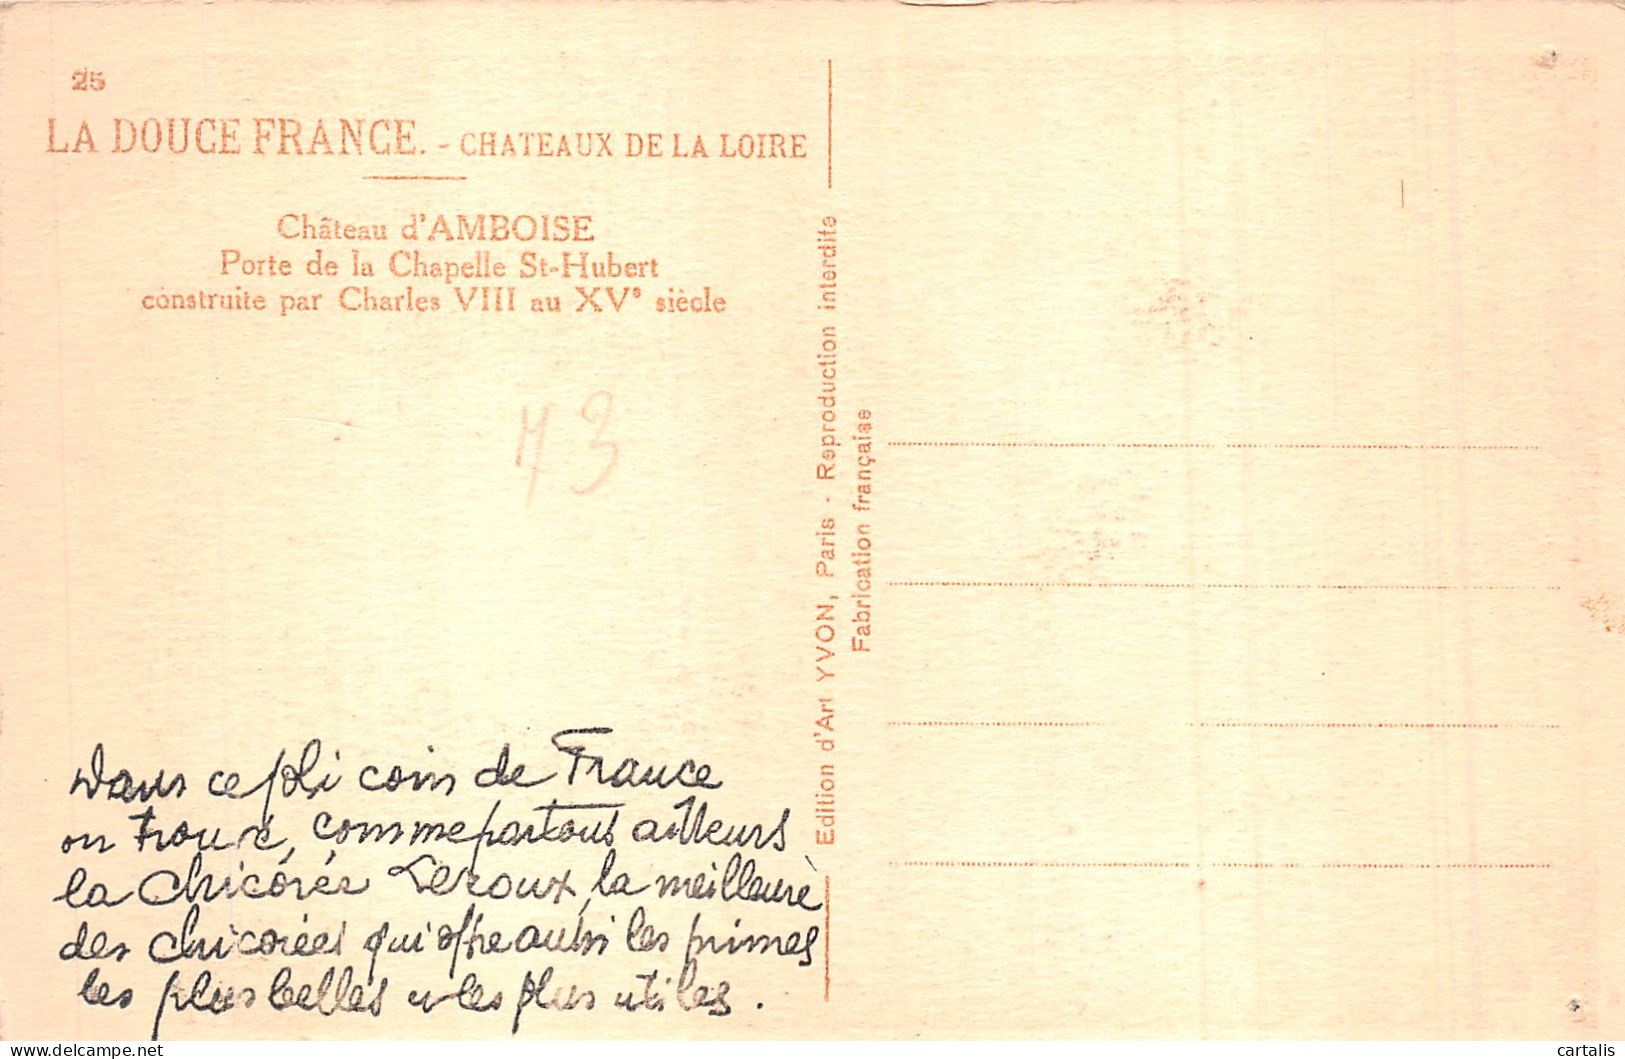 25
LA DOUCE FRANCE. - CHATEAUX DE LA LOIRE
Château d'AMBOISE
Porte de la Chapelle St-Hubert
construite par Charles VIII au XVᵉ siècle
73
Dans ce joli coin de France
on trouve, comme partout ailleurs
la chicorée Leroux, la meilleure
des chicorées qui offre aussi les primes
les plus belles et les plus utiles.
Edition d'Art YVON, Paris - Reproduction interdite
Fabrication française
delcampe.net
cartalis